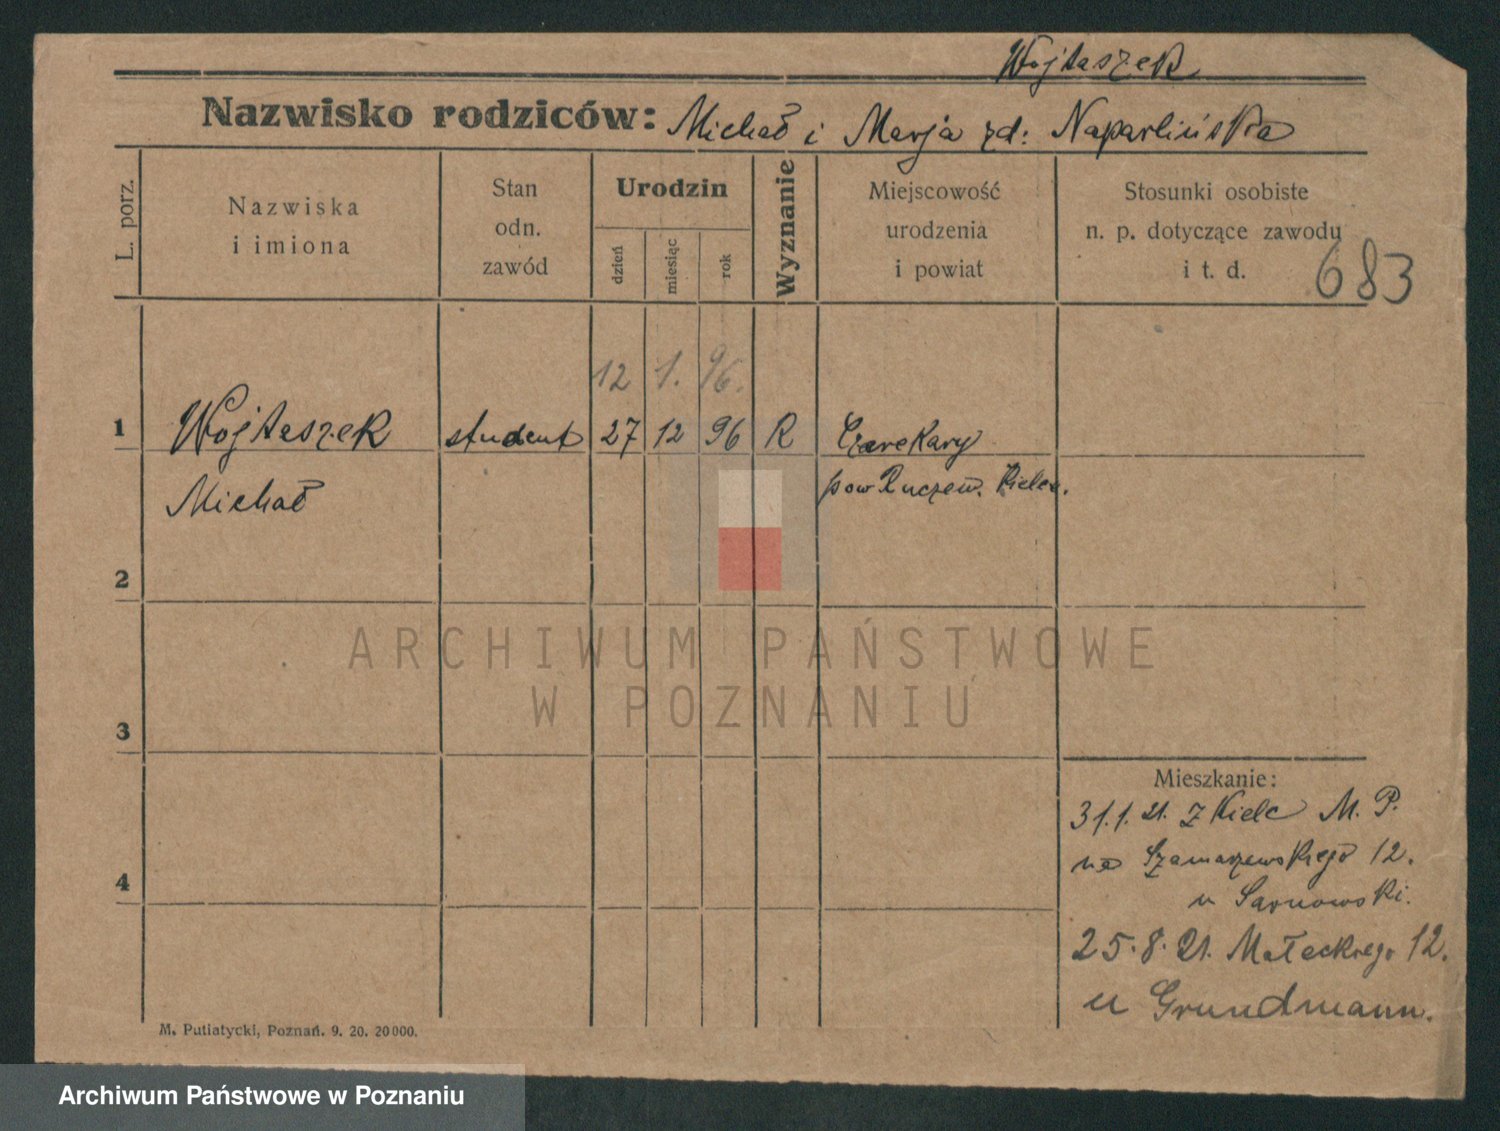 Wojtaszek
Nazwisko rodziców: Michał i Marja zd: Naparlińska
L. porz.
Nazwiska
i imiona
Stan
odn.
zawód
Urodzin
dzień
miesiąc
rok
Wyznanie
Miejscowość
urodzenia
i powiat
Stosunki osobiste
n. p. dotyczące zawodu
i t. d.
683
12 1. 96.
1 Wojtaszek student 27 12 96 R
Michał
pow
2
3
4
ARCHIWUM PAŃSTWOWE
W POZNANIU
Mieszkanie:
31.1.21. z Kielc M. P.
na Szamarzewskiego 12.
u Sarnowski.
25.8.21. Małeckiego 12.
u Grundmann.
M. Putiatycki, Poznań. 9. 20. 20000.
Archiwum Państwowe w Poznaniu